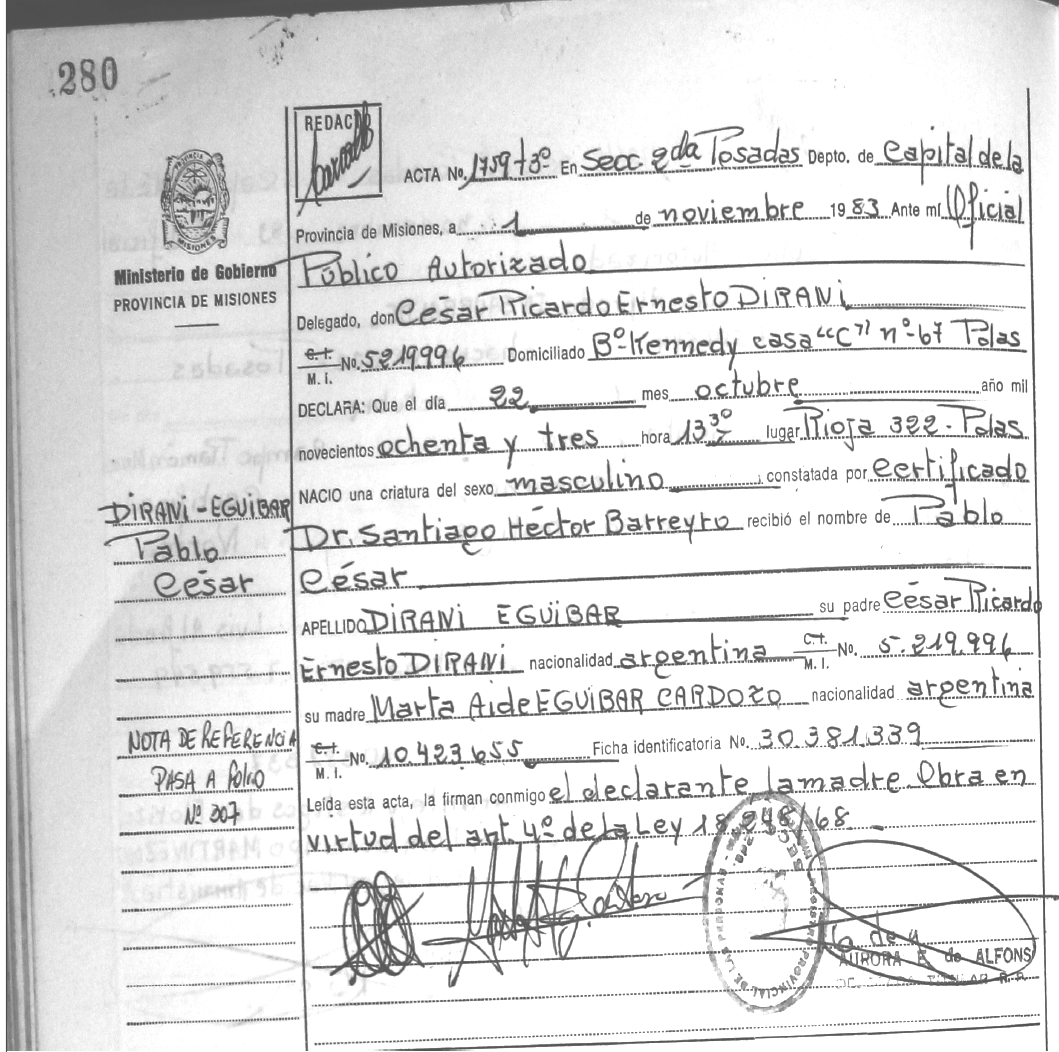 280
REDAC
ACTA No. 1759 t 3º En Secc 2da Posadas Depto. de Capital de la
Provincia de Misiones, a 1 de noviembre 1983 Ante mí Oficial
Público Autorizado
PROVINCIA DE MISIONES
Ministerio de Gobierno
PROVINCIA DE MISIONES
Delegado, don César Ricardo Ernesto DIRANI
C.I. M.I. No. 5219996 Domiciliado Bº Kennedy casa "C" nº 67 Pdas
DECLARA: Que el día 22 mes octubre año mil
novecientos ochenta y tres hora 13 30 lugar Rioja 322 - Pdas
NACIO una criatura del sexo masculino constatada por Certificado
Dr. Santiago Héctor Barreyro recibió el nombre de Pablo
César
APELLIDO DIRANI EGUIBAR su padre César Ricardo
Ernesto DIRANI nacionalidad argentina C.I. M.I. No. 5.219.996
su madre Marta Aide EGUIBAR CARDOZO nacionalidad argentina
C.I. M.I. No. 10.423.655 Ficha identificatoria No. 30.381.339
Leída esta acta, la firman conmigo el declarante la madre Obra en
virtud del art. 4º de la Ley 18.248/68
DIRANI - EGUIBAR
Pablo
César
NOTA DE REFERENCIA
PASA A FOLIO
Nº 307
REGISTRO PROVINCIAL DE LAS PERSONAS
AURORA E. de ALFONS